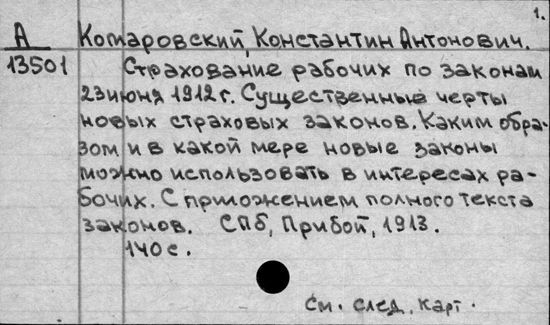 1.
А Комаровский, Константин Антонович.
13501 Страхование рабочих по законам
23 июня 1912 г. Существенные черты
новых страховых законов. Каким обра-
зом и в какой мере новые законы
можно использовать в интересах ра-
бочих. С приложением полного текста
законов. СПб, Прибой, 1913.
140 с.
См. след. карт.